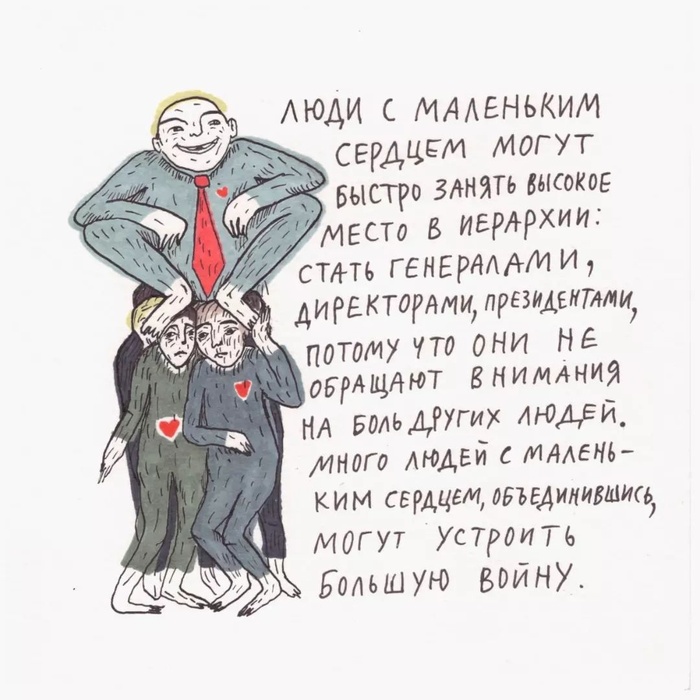 ЛЮДИ С МАЛЕНЬКИМ
СЕРДЦЕМ МОГУТ
БЫСТРО ЗАНЯТЬ ВЫСОКОЕ
МЕСТО В ИЕРАРХИИ:
СТАТЬ ГЕНЕРАЛАМИ,
ДИРЕКТОРАМИ, ПРЕЗИДЕНТАМИ,
ПОТОМУ ЧТО ОНИ НЕ
ОБРАЩАЮТ ВНИМАНИЯ
НА БОЛЬ ДРУГИХ ЛЮДЕЙ.
МНОГО ЛЮДЕЙ С МАЛЕНЬ-
КИМ СЕРДЦЕМ, ОБЪЕДИНИВШИСЬ,
МОГУТ УСТРОИТЬ
БОЛЬШУЮ ВОЙНУ.